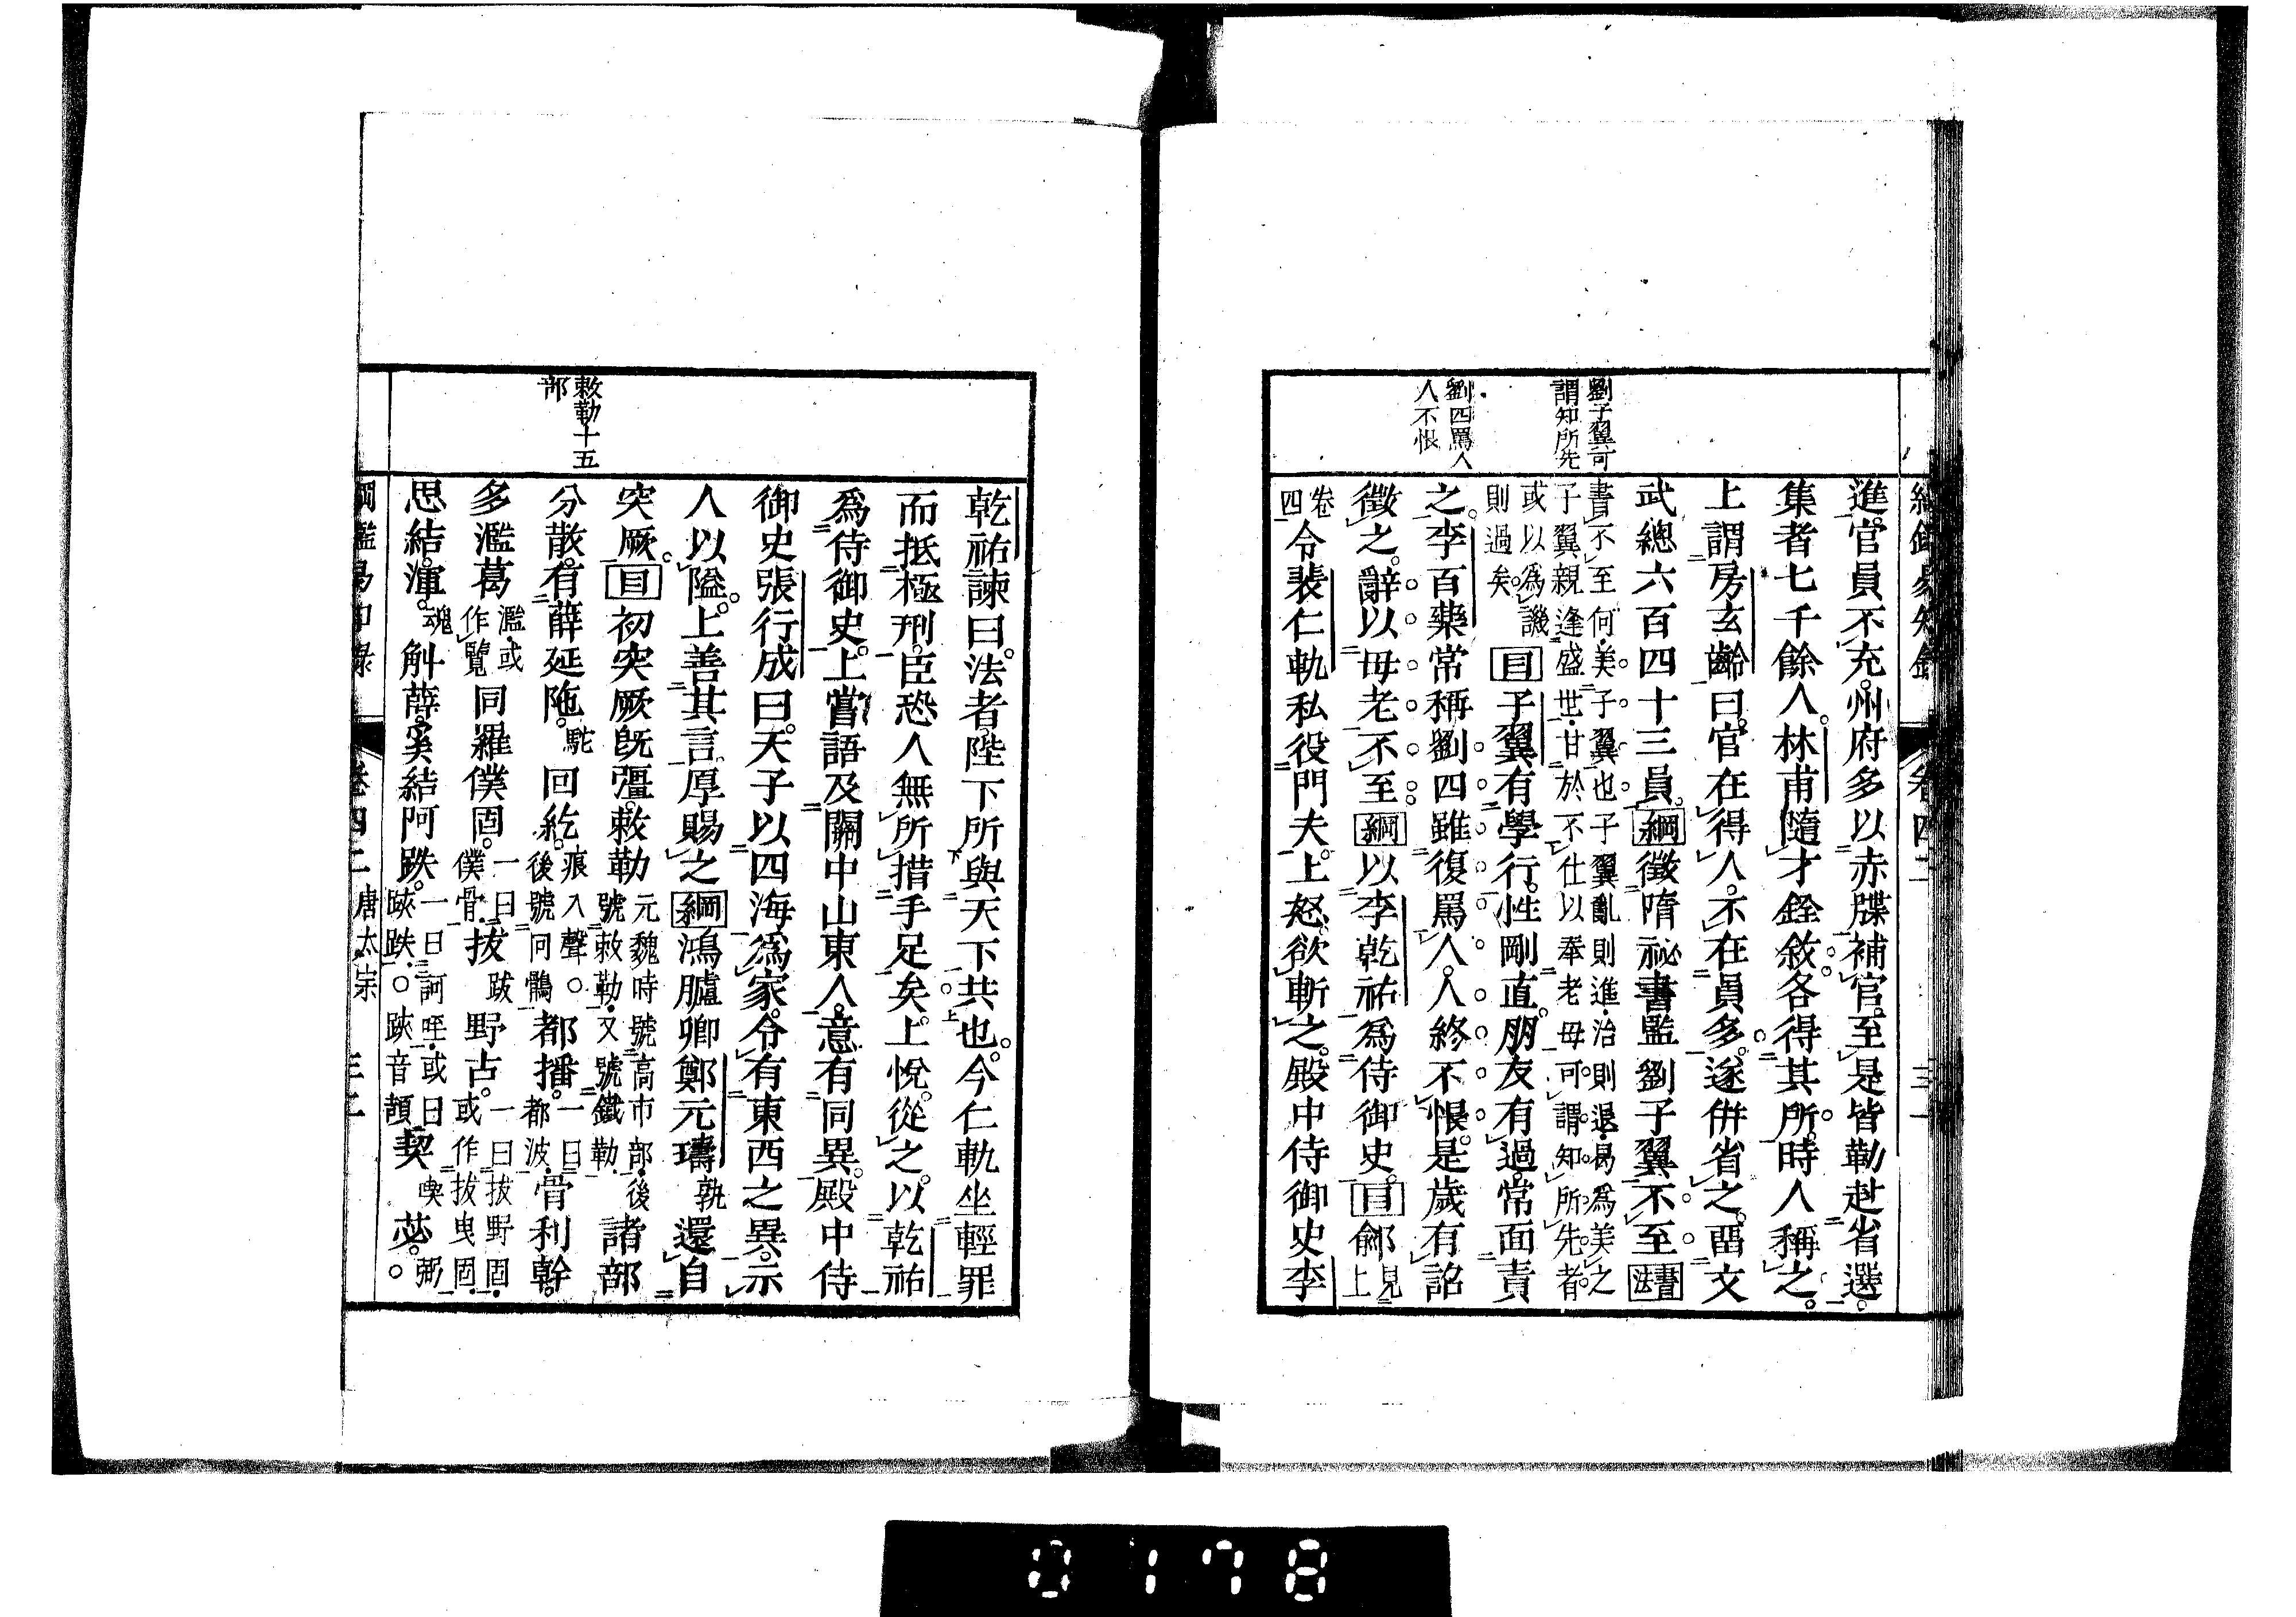 劉子翼可
謂知所先
劉四罵人
人不恨
進官員不充州府多以赤牒補官至是皆勒赴省選
集者七千餘人林甫隨才銓敘各得其所時人稱之
上謂房玄齡曰官在得人不在員多遂併省之畱文
武總六百四十三員綱徵隋祕書監劉子翼不至書法
書不至何美子翼也子翼亂則進治則退曷爲美之
子翼親逢盛世甘於不仕以奉老母可謂知所先者
或以爲譏
則過矣
目子翼有學行性剛直朋友有過常面責
之李百藥常稱劉四雖復罵人人終不恨是歲有詔
徵之辭以母老不至綱以李乾祐爲侍御史目鄃見上
卷四令裴仁軌私役門夫上怒欲斬之殿中侍御史李
卷四二
敕勒十五
部
乾祐諫曰法者陛下所與天下共也今仁軌坐輕罪
而抵極刑臣恐人無所措手足矣上悅從之以乾祐
爲侍御史上嘗語及關中山東人意有同異殿中侍
御史張行成曰天子以四海爲家令有東西之異示
人以隘上善其言厚賜之綱鴻臚卿鄭元璹孰還自
突厥目初突厥旣彊敕勒元魏時號高市部後號敕勒又號鐵勒諸部
分散有薛延陁駝回紇痕入聲○後號回鶻都播一曰都波骨利幹
多濫葛濫或作覽同羅僕固一曰僕骨拔跋野古一曰拔野固或作拔曳固
思結渾魂斛薛奚結阿跌一曰訶咥或曰䠟跌○䠟音頡契喫苾弼○
綱鑑易知錄 卷四二 唐太宗 三二
0178